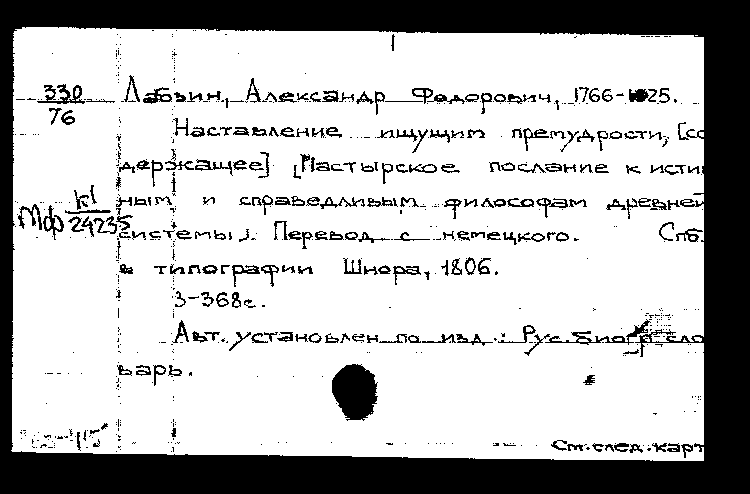 330
76
Лабзин, Александр Федорович, 1766-1825.
Наставление ищущим премудрости, [со
держащее] [Пастырское послание к исти
ным и справедливым философам древней
Мф К1
24235
системы]. Перевод с немецкого. Спб.
в типографии Шнора, 1806.
3-368с.
Авт. установлен по изд.: Рус. биогр. сло
варь.
См. след. карт